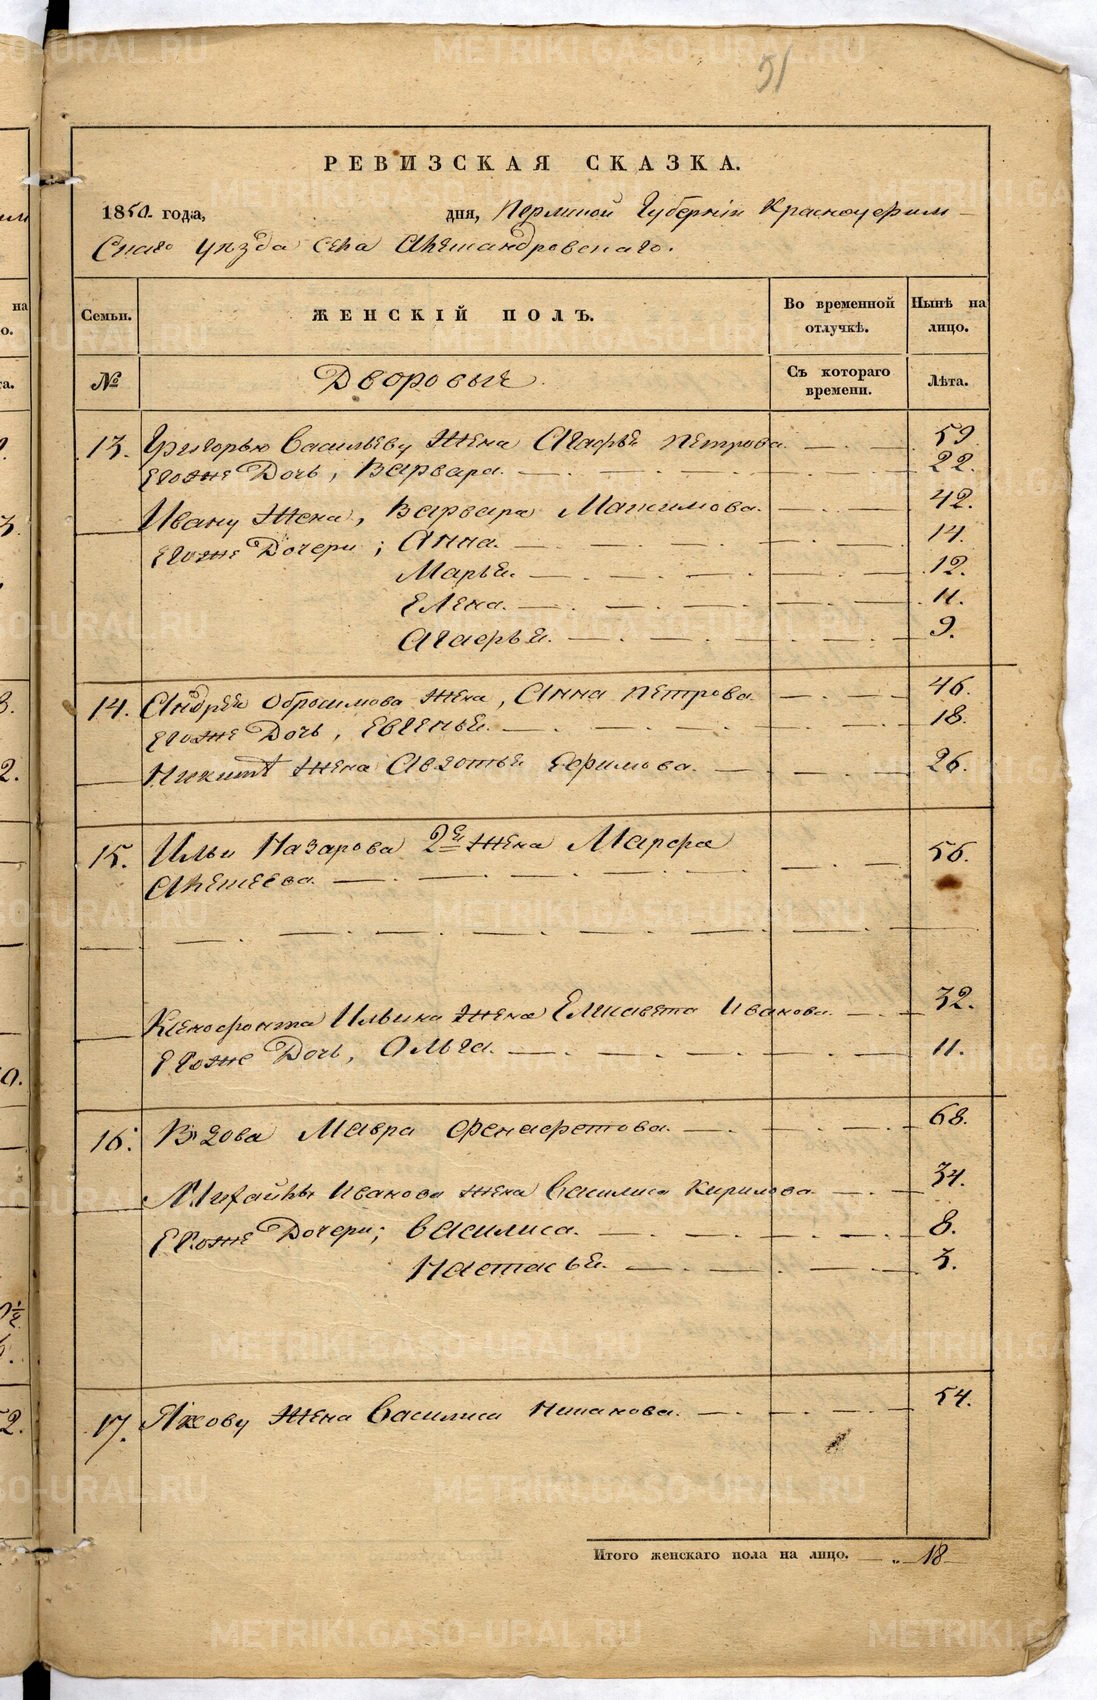 51
РЕВИЗСКАЯ СКАЗКА.
1850 года, дня, Пермской Губернiи Красноуфим-
скаго уѣзда села Александровскаго.
Семьи. ЖЕНСКIЙ ПОЛЪ. Во временной отлучкѣ. Нынѣ на лицо.
№ Дворовые Съ котораго времени. Лѣта.
13. Григорью Васильеву жена Агафья Петрова. 59.
Егоже Дочь, Варвара. 22.
Ивану жена, Варвара Максимова. 42.
Егоже Дочери; Анна. 14.
Марья. 12.
Елена. 11.
Агафья. 9.
14. Андрея Обросимова жена, Анна Петрова. 46.
Егоже Дочь, Евгенья. 18.
Никиты жена Авдотья Ефимова. 26.
15. Ильи Назарова 2я жена Марфа 56.
Алексеева.
Ксенофонта Ильина жена Елисавета Иванова. 32.
Егоже Дочь, Ольга. 11.
16. Вдова Мавра Фенафетова. 68.
Михайлы Иванова жена Василиса Кирилова. 34.
Егоже Дочери; Василиса. 8.
Настасья. 3.
17. Якову жена Василиса 54.
Итого женскаго пола на лицо. 18
METRIKI.GASO-URAL.RU